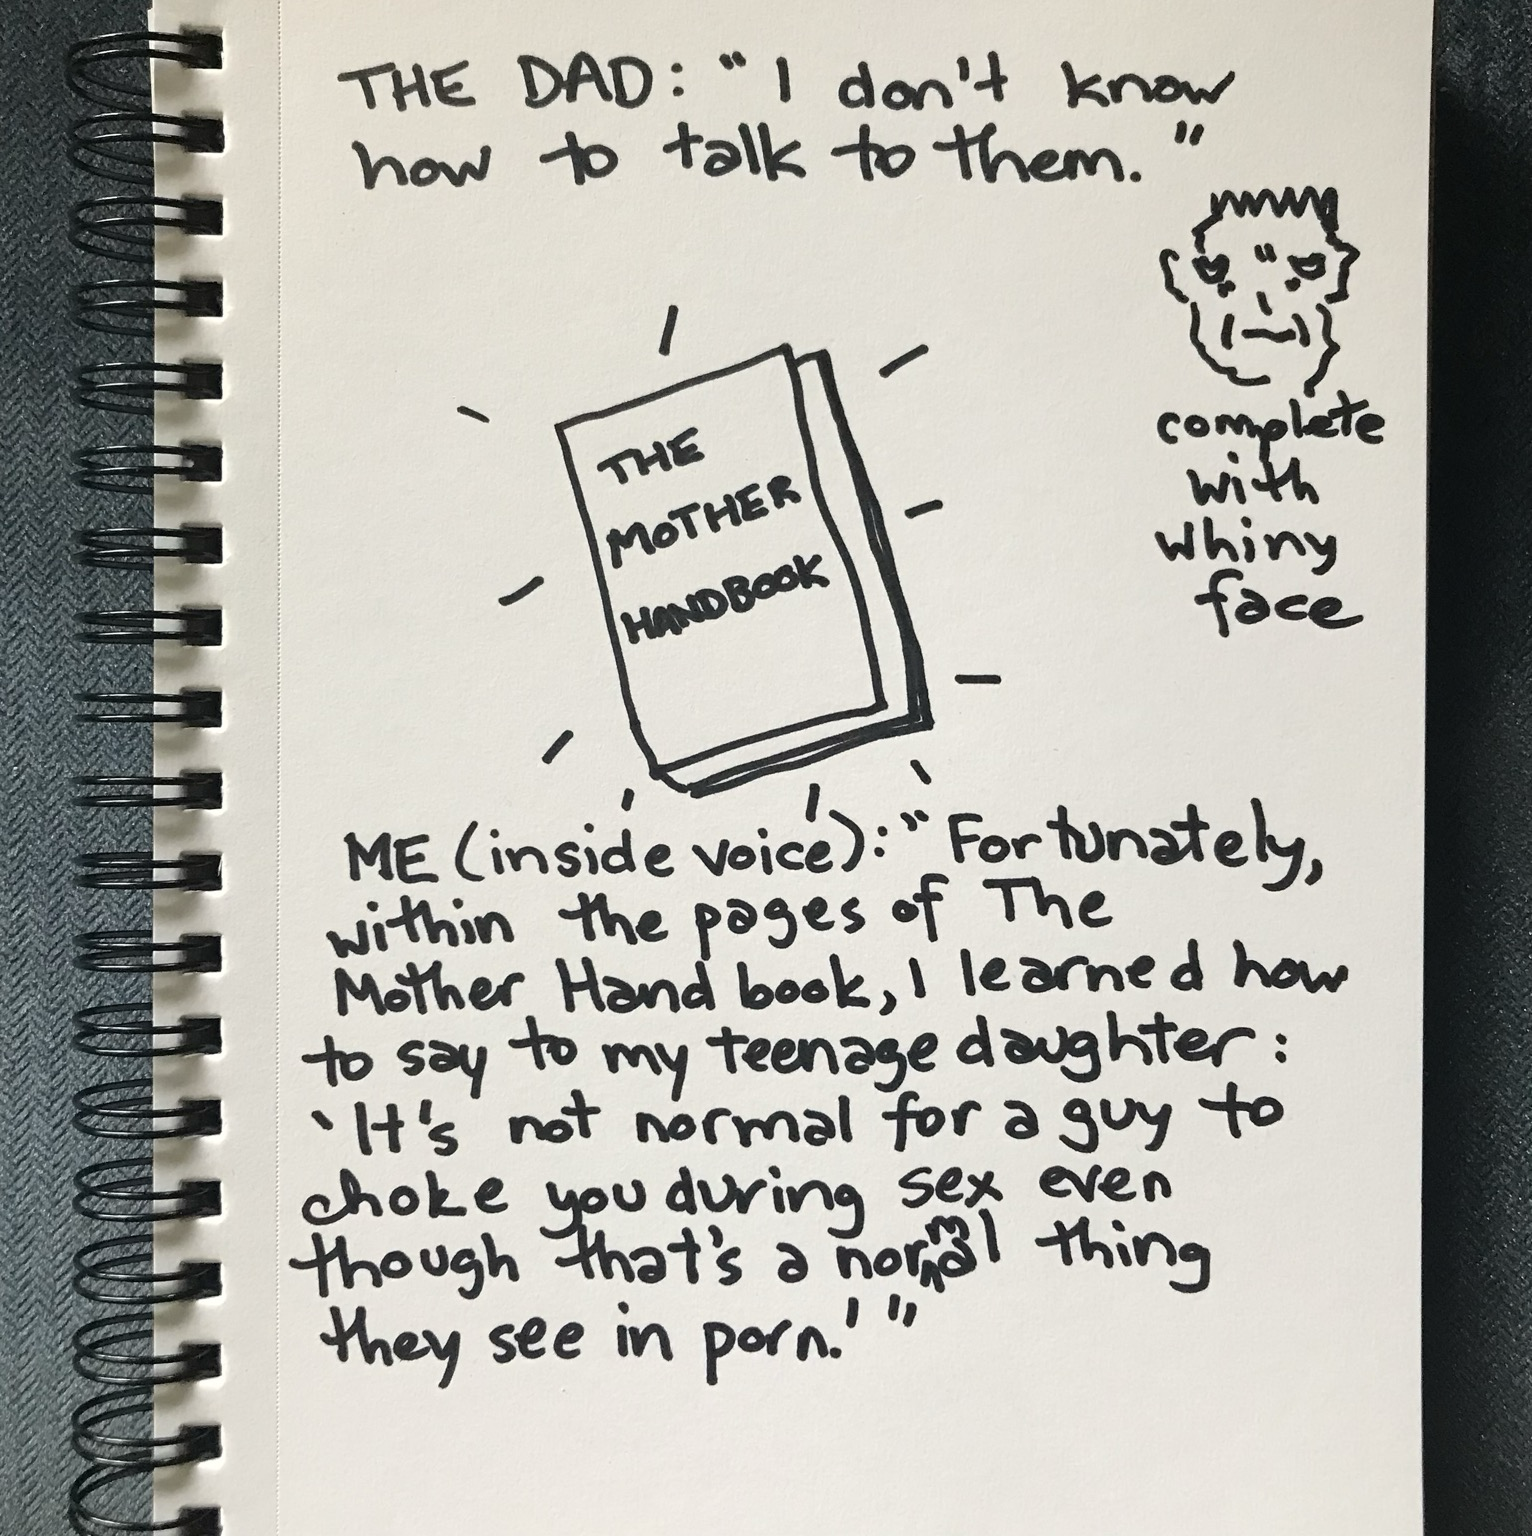 THE DAD: "I don't know
how to talk to them."
complete
with
whiny
face
THE
MOTHER
HANDBOOK
ME (inside voice): "Fortunately,
within the pages of The
Mother Hand book, I learned how
to say to my teenage daughter:
'It's not normal for a guy to
choke you during sex even
though that's a normal thing
they see in porn.'"